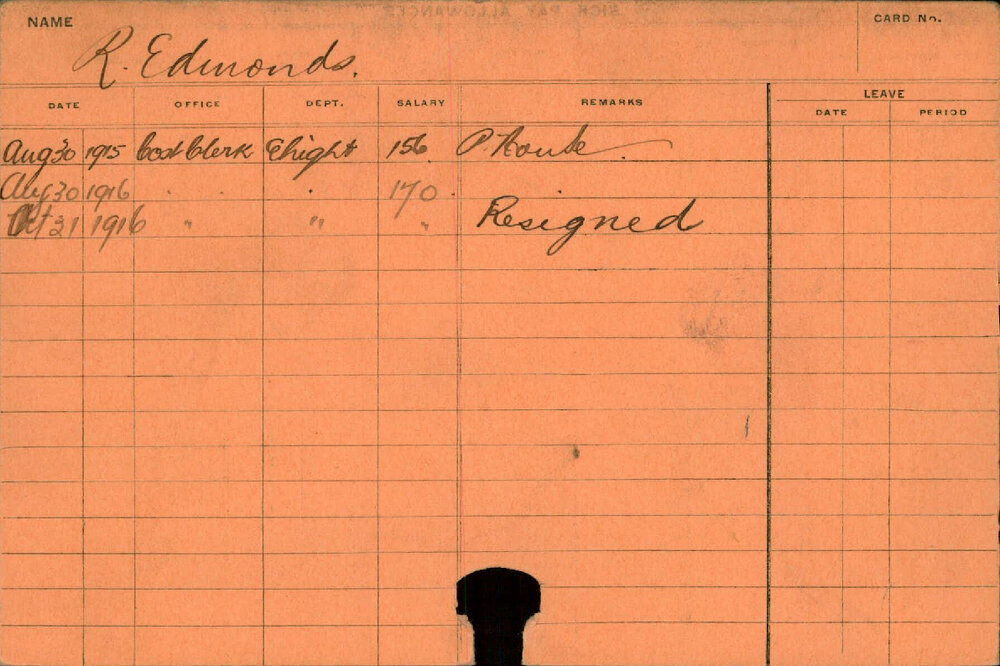 SICK PAY ALLOWANCE
NAME
CARD No.
R. Edmonds.
DATE OFFICE DEPT. SALARY REMARKS LEAVE
DATE PERIOD
Aug 30 1915 Cost Clerk 156 P House
Aug 30 1916 " " 170
Oct 31 1916 " " " Resigned